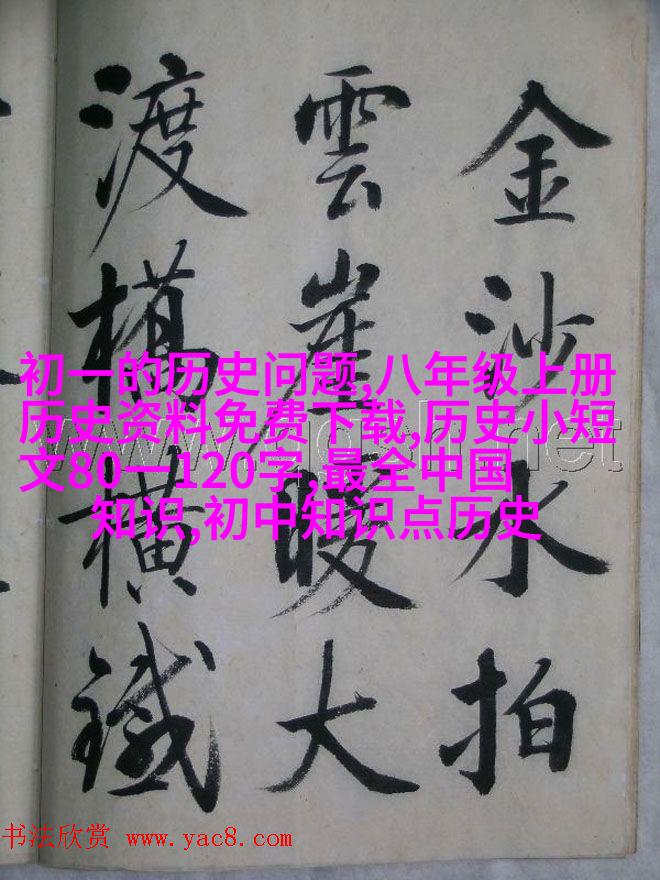 金沙水拍
雲崖暖大
渡橋橫鐵
初一的历史问题,八年级上册
历史资料免费下载,历史小短
文80一120字,最全中国
知识,初中知识点历史
书法欣赏 www.yac8.com